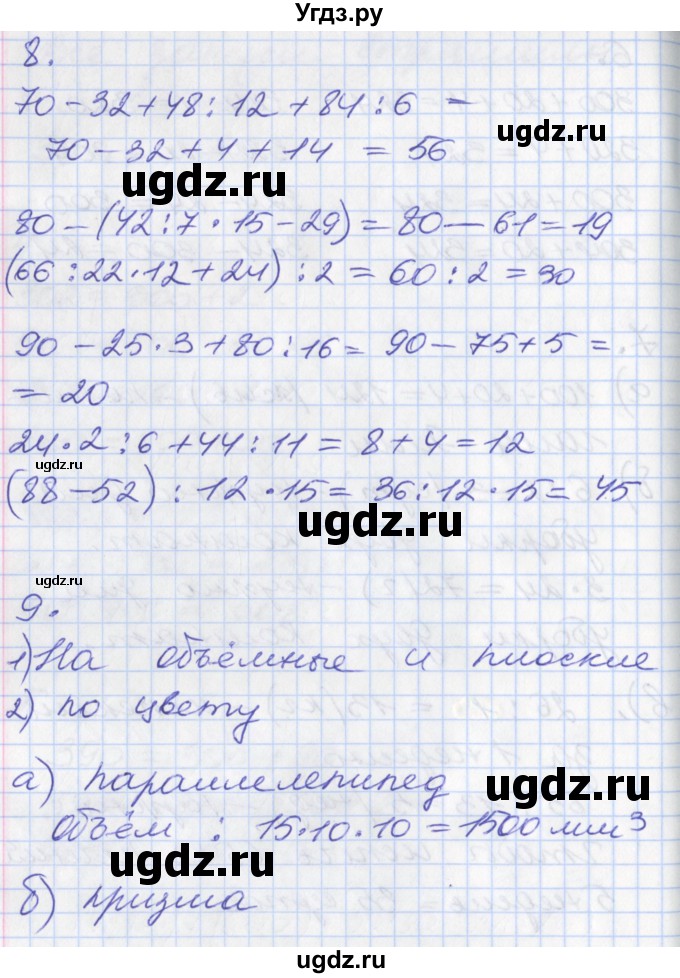 Угдз.ру
8.
70-32+48:12+84:6 =
70-32+4+14 = 56
ugdz.ru
ugdz.ru
80-(42:7·15-29)=80-61=19
(66:22·12+24):2=60:2=30
90-25·3+80:16=90-75+5=
=20
ugdz.ru
24·2:6+44:11=8+4=12
ugdz.ru
(88-52):12·15=36:12·15=45
ugdz.ru
ugdz.ru
9.
1) На объёмные и плоские
2) по цвету
а) параллелепипед
ugdz.ru
объём : 15·10·10=1500 мм³
ugdz.ru
б) призма
ugdz.ru